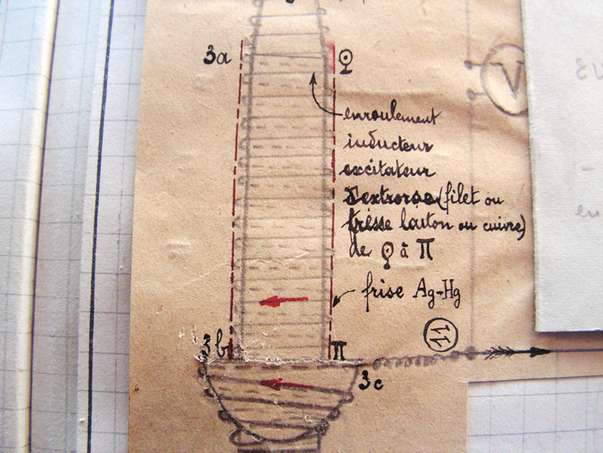 3a
enroulement
inducteur
excitateur
dextrorse (filet ou
frise laiton ou cuivre)
de Ω à Π
frise Ag-Hg
11
3b
Π
3c
V